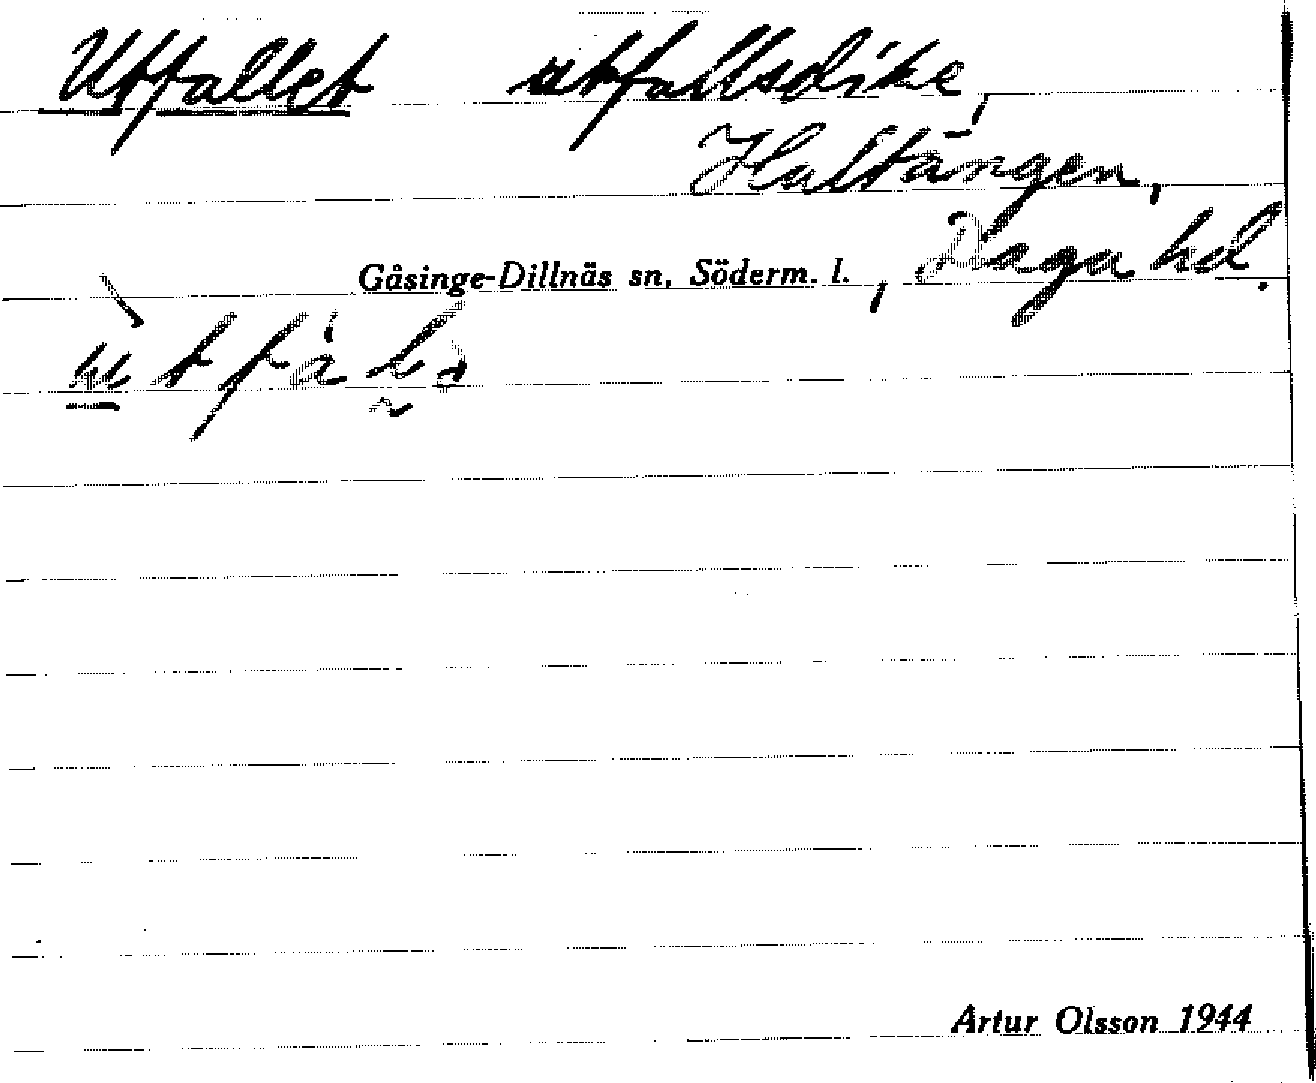 Utfallet utfallsdike,
Hultängen,
Gåsinge-Dillnäs sn, Söderm. l., Daga hd.
Artur Olsson 1944